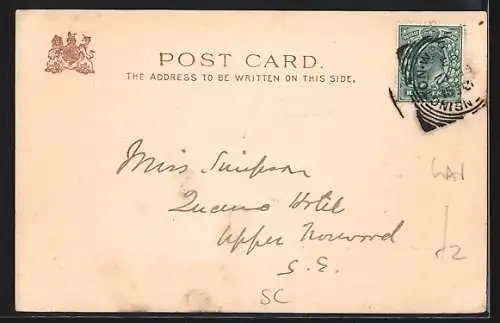 POST CARD.
THE ADDRESS TO BE WRITTEN ON THIS SIDE.
Miss Simpson
Queens Hotel
Upper Norwood
S.E.
SC
/2